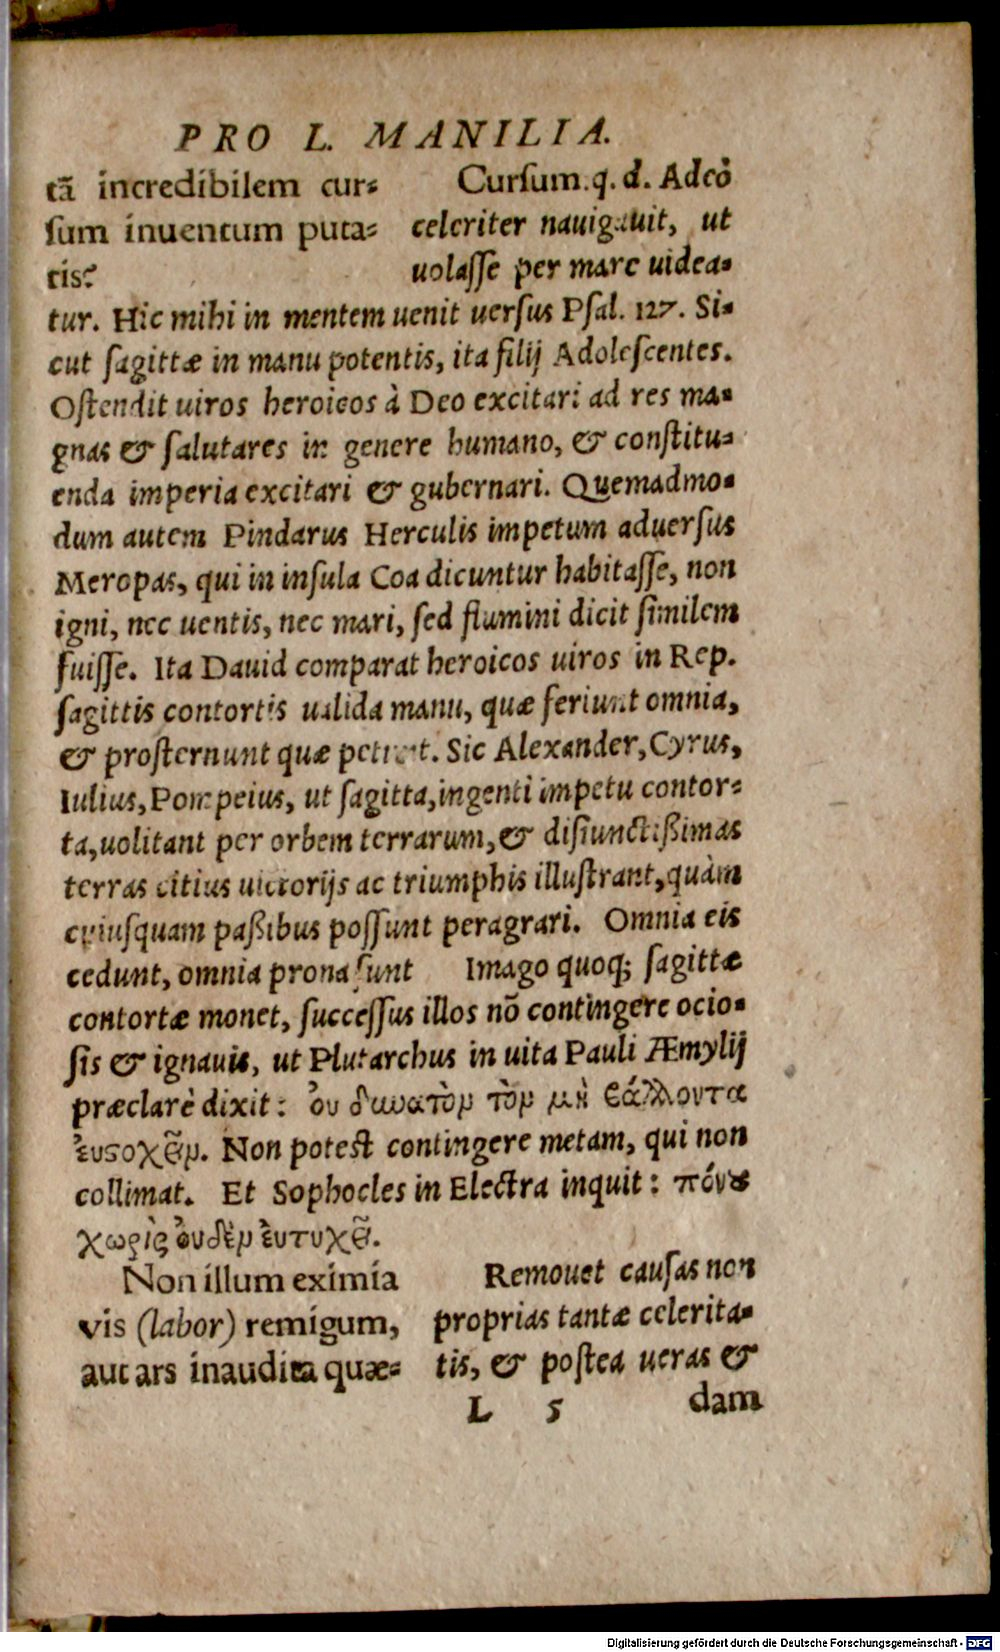 PRO L. MANILIA.
tā incredibilem cur=
sum inuentum puta=
tis?
Cursum. q. d. Adeò
celeriter nauigauit, ut
uolasse per mare uidea=
tur. Hic mihi in mentem uenit uersus Psal. 127. Si=
cut sagittæ in manu potentis, ita filij Adolescentes.
Ostendit uiros heroicos à Deo excitari ad res ma=
gnas & salutares in genere humano, & constitu=
enda imperia excitari & gubernari. Quemadmo=
dum autem Pindarus Herculis impetum aduersus
Meropas, qui in insula Coa dicuntur habitasse, non
igni, nec uentis, nec mari, sed flumini dicit similem
fuisse. Ita Dauid comparat heroicos uiros in Rep.
sagittis contortis ualida manu, quæ feriunt omnia,
& prosternunt quæ petunt. Sic Alexander, Cyrus,
Iulius, Pompeius, ut sagitta, ingenti impetu contor=
ta, uolitant per orbem terrarum, & disiunctißimas
terras citius uictorijs ac triumphis illustrant, quàm
cuiusquam paßibus possunt peragrari. Omnia eis
cedunt, omnia prona sunt Imago quoq; sagittæ
contortæ monet, successus illos nō contingere ocio=
sis & ignauis, ut Plutarchus in uita Pauli Æmylij
præclarè dixit: ὀυ δυνατὸν τὸν μὴ βάλλοντα
ἐυστοχεῖν. Non potest contingere metam, qui non
collimat. Et Sophocles in Electra inquit: πόνου
χωρὶς ὀυδὲν ἐυτυχεῖ.
Non illum eximia
vis (labor) remigum,
aut ars inaudita quæ=
Remouet causas non
proprias tantæ celerita=
tis, & postea ueras &
L 5 dam
Digitalisierung gefördert durch die Deutsche Forschungsgemeinschaft - DFG